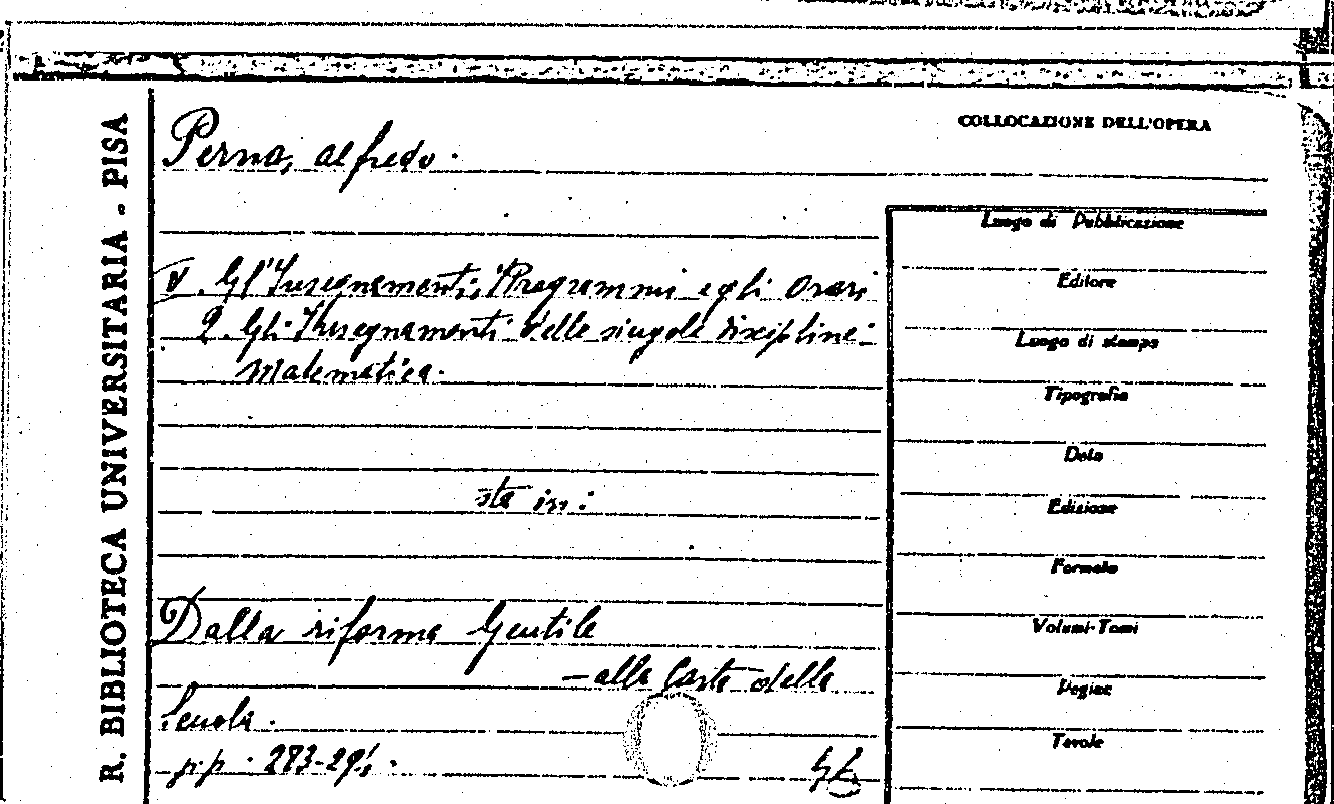 R. BIBLIOTECA UNIVERSITARIA - PISA
COLLOCAZIONE DELL'OPERA
Perna, Alfredo.
V. Gl'Insegnamenti, i Programmi e gli Orari
2. Gli Insegnamenti delle singole discipline -
Matematica.
sta in:
Dalla riforma Gentile
- alla Carta della
Scuola.
pp. 283-29
Luogo di Pubblicazione
Editore
Luogo di stampa
Tipografia
Data
Edizione
Formato
Volumi-Tomi
Pagine
Tavole